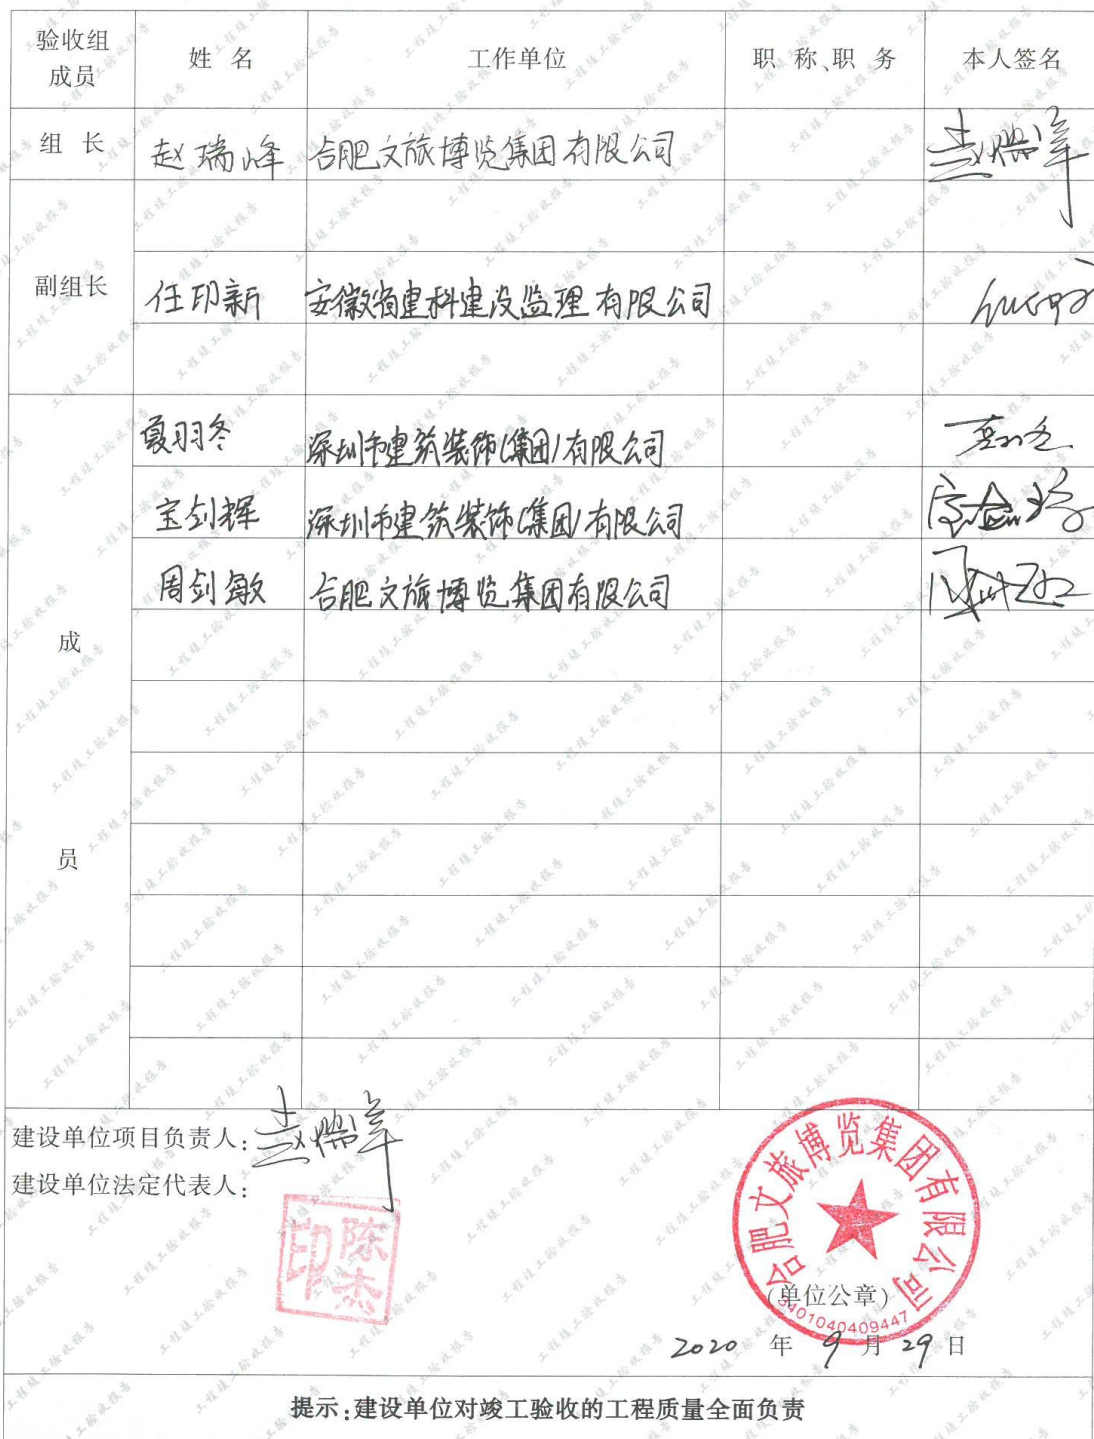 验收组成员 姓 名 工作单位 职 称、职 务 本人签名
组 长 赵瑞峰 合肥文旅博览集团有限公司 赵瑞峰
副组长 任印新 安徽省建科建设监理有限公司
夏羽冬 深圳市建筑装饰(集团)有限公司
宝剑辉 深圳市建筑装饰(集团)有限公司
周剑敏 合肥文旅博览集团有限公司
成员
建设单位项目负责人: 赵瑞峰
建设单位法定代表人:
陈杰印
合肥文旅博览集团有限公司
(单位公章)
3401040409447
2020 年 9 月 29 日
提示:建设单位对竣工验收的工程质量全面负责
工程竣工验收报告